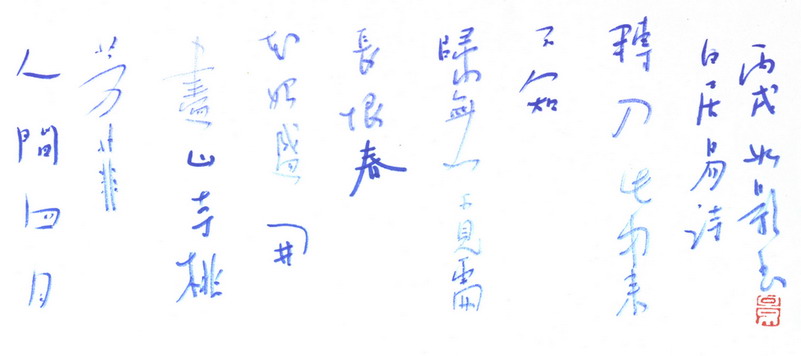 人間四月
芳菲
盡山寺桃
花始盛開
長恨春
歸無覔處
不知
轉入此中來
白居易詩
丙戌如影書